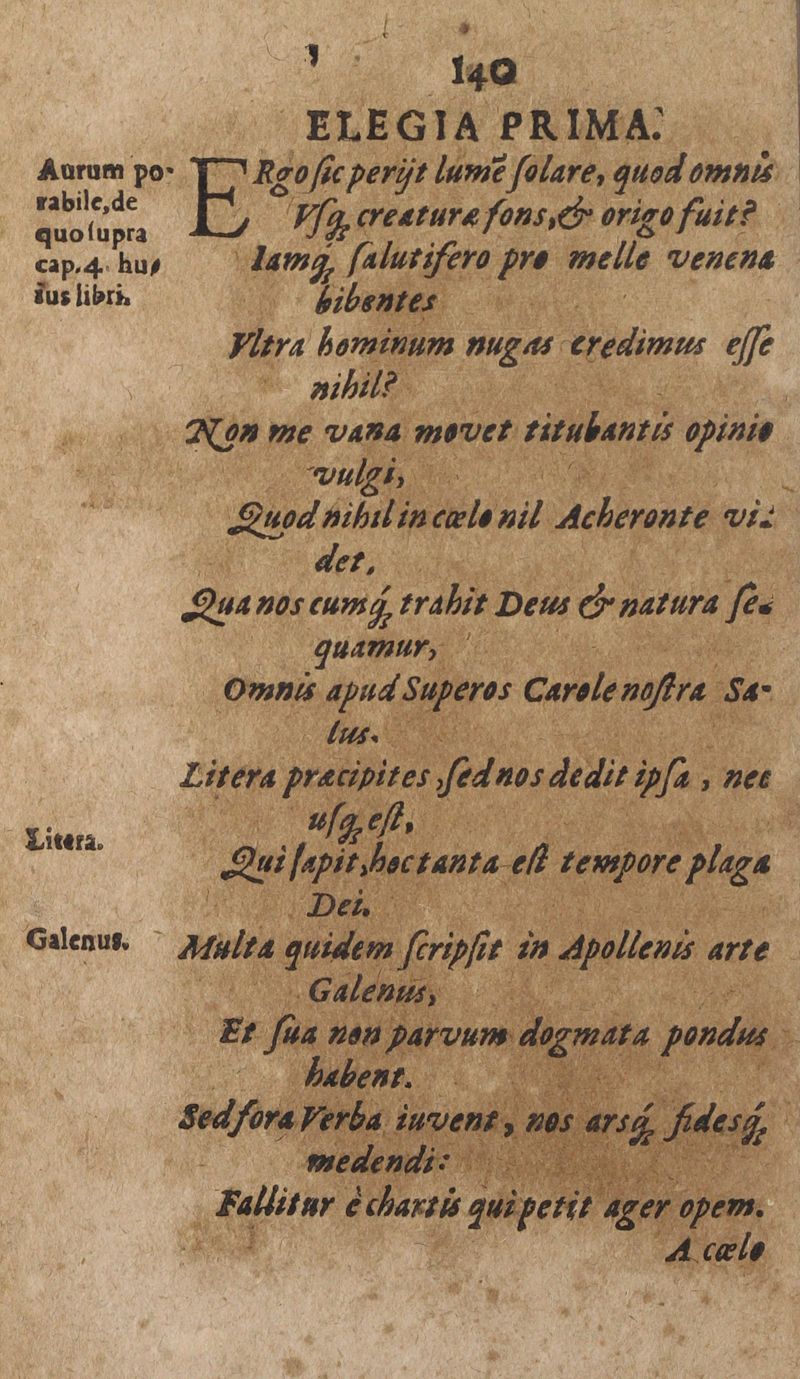 140
ELEGIA PRIMA.
Aurum po-
rabile,de
quoſupra
cap.4. hu-
ius libri.
ERgo ſic perijt lumē ſolare, quod omnis
Vſq́, creaturæ fons,& origo fuit?
Iamq́, ſalutifero pro melle venena
bibentes
Vltra hominum nugas credimus eſſe
nihil?
Non me vana movet titubantis opinio
vulgi,
Quod nihil in cœlo nil Acheronte vi-
det,
Qua nos cumq́, trahit Deus & natura ſe-
quamur,
Omnis apud Superos Carole noſtra Sa-
lus.
Litera præcipites ,ſed nos dedit ipſa , nec
uſq́, eſt,
Litera.
Qui ſapit,hoc tanta eſt tempore plaga
Dei.
Galenus.
Multa quidem ſcripſit in Apollenis arte
Galenus,
Et ſua non parvum dogmata pondus
habent.
Sed fora Verba iuvent, nos arsq́, fidesq́,
medendi:
Fallitur è chartis qui petit æger opem.
A cœlo